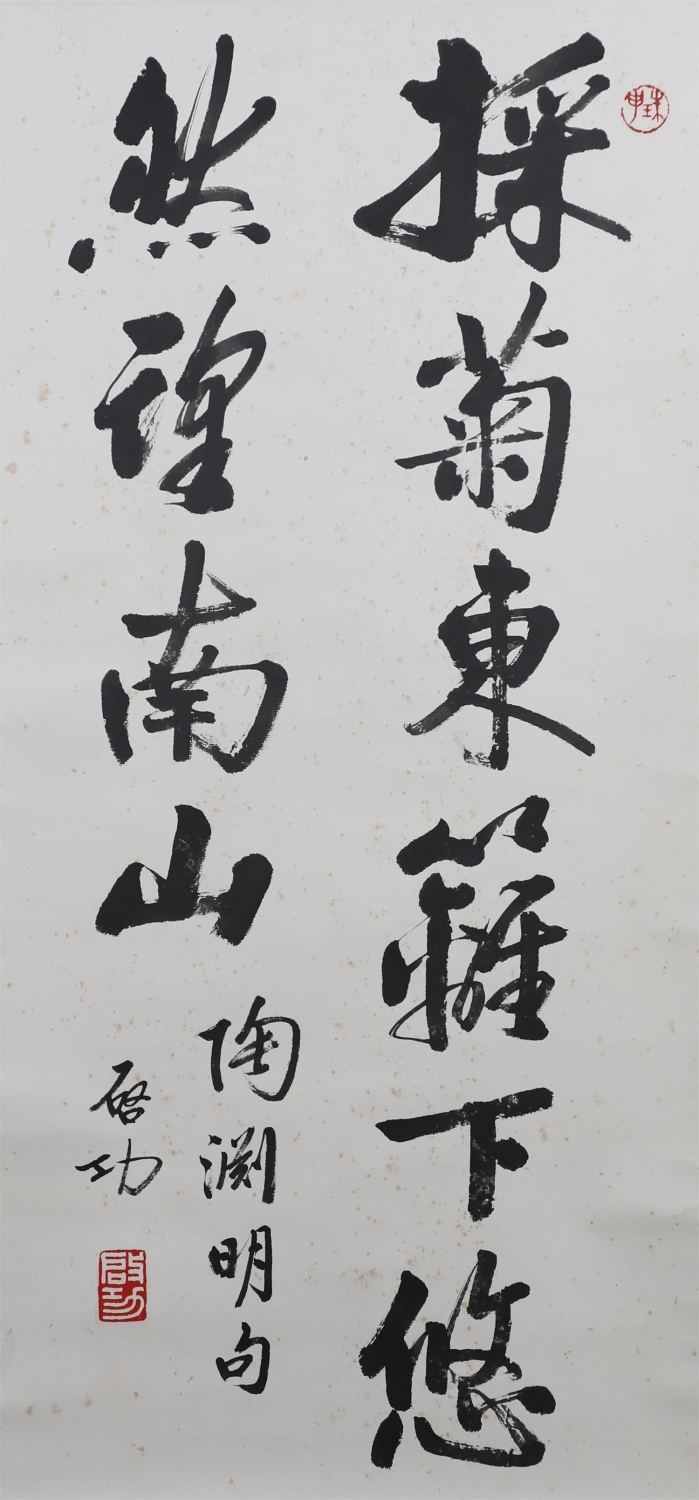 採菊東籬下悠
然望南山
陶渊明句
啓功
啟功